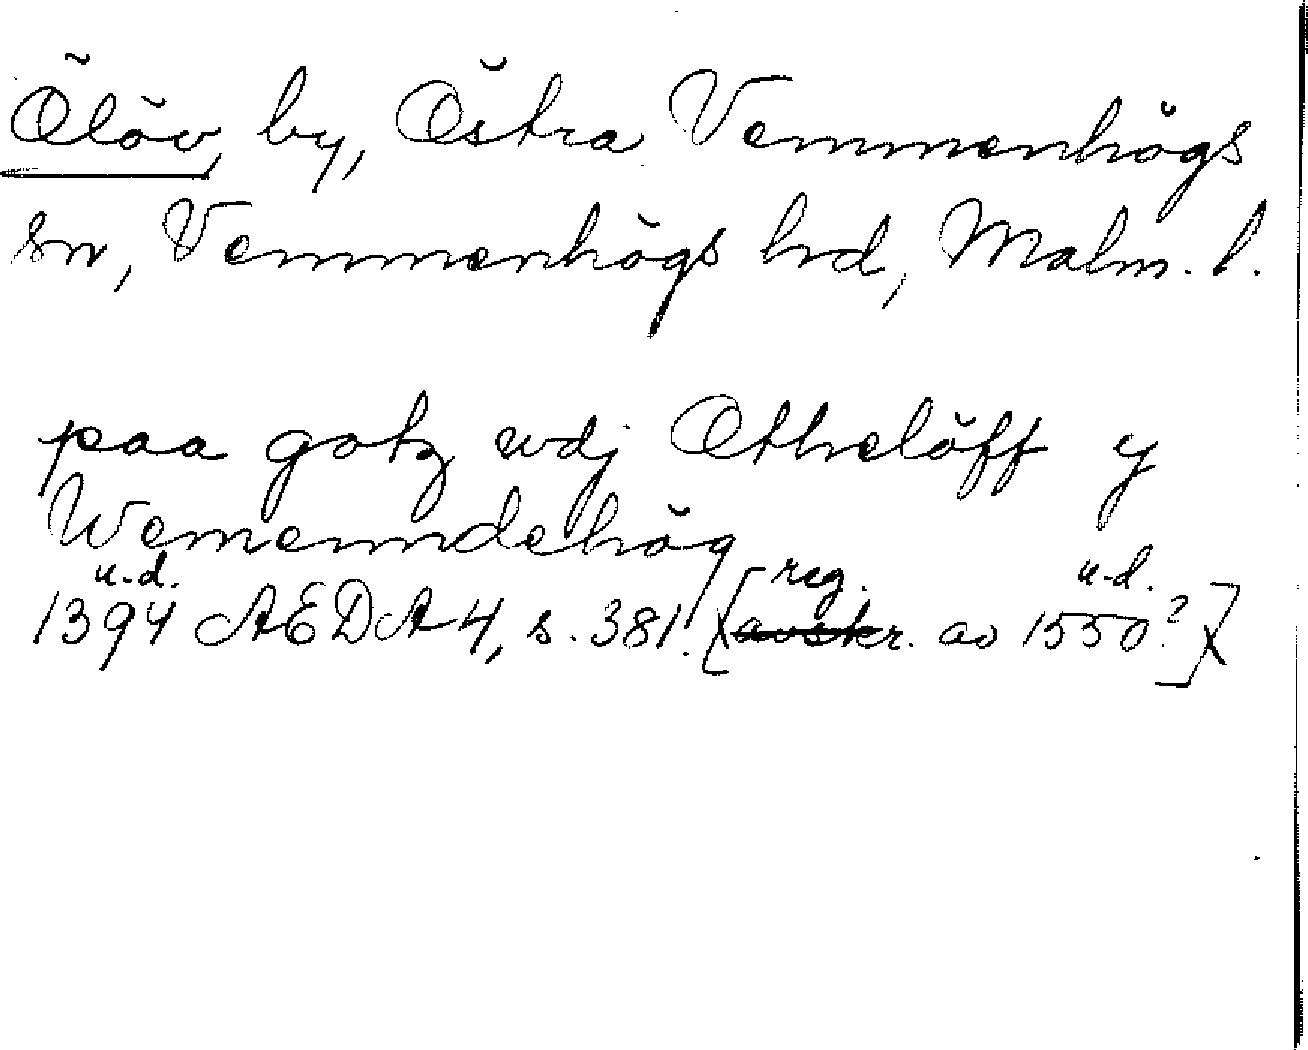 Ölöv, by, Östra Vemmenhögs
sn, Vemmenhögs hd, Malm. l.
paa gotz wdj Othelöff y
Wemenndehög
u.d. reg. u.d.
1394 AEDA 4, s. 381. [avskr. av 1550?]